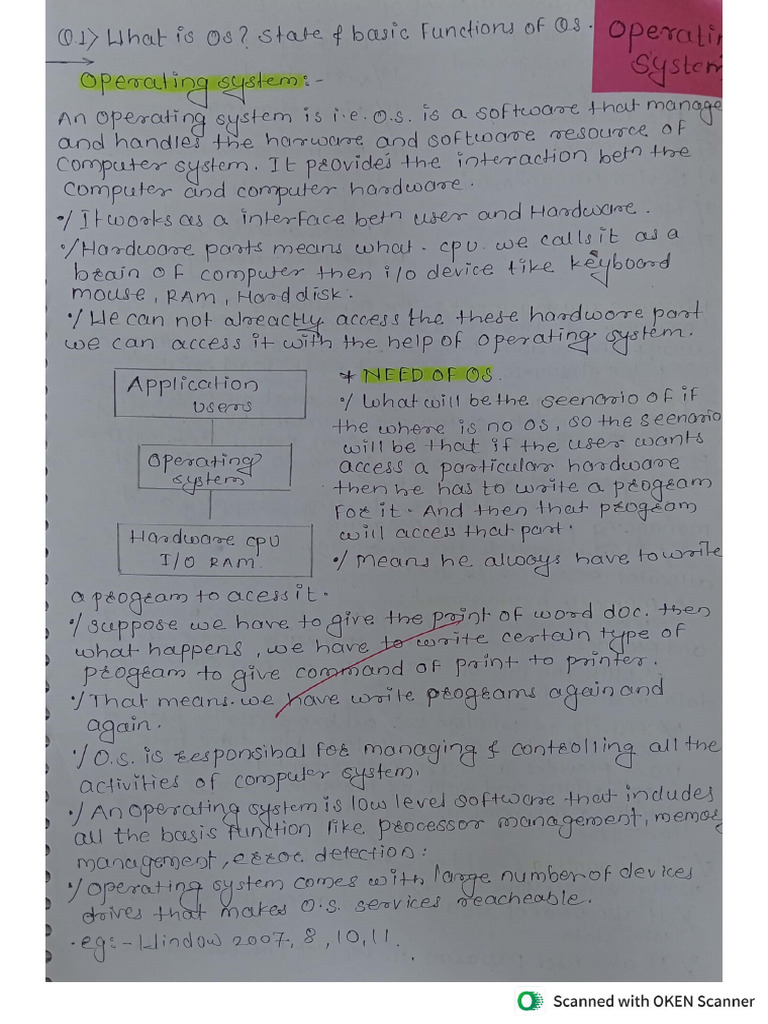 Q1) What is OS? State & basic Functions of OS.
Operatin
System
Operating system:-
An operating system is i.e. O.S. is a software that manage
and handles the harware and software resource of
computer system. It provides the interaction betn the
computer and computer hardware.
•/ It works as a interface betn user and Hardware.
•/ Hardware parts means what. cpu we calls it as a
brain of computer then i/o device like keyboard
mouse, RAM, Hard disk.
•/ We can not alreactly access the these hardware part
we can access it with the help of operating system.
Application
users
Operating
system
Hardware cpu
I/O RAM.
* NEED OF OS.
•/ What will be the seenario of if
the where is no OS, so the seenario
will be that if the user wants
access a particular hardware
then he has to write a program
for it. And then that program
will access that part.
•/ Means he always have to write
a program to acess it.
•/ suppose we have to give the print of word doc. then
what happens, we have to write certain type of
program to give command of print to printer.
•/ That means. we have write programs again and
again.
•/ O.S. is responsibal for managing & controlling all the
activities of computer system.
•/ An operating system is low level software that includes
all the basis function like processor management, memory
management, error detection:
•/ Operating system comes with large number of devices
drives that makes O.S. services reacheable.
• eg:- Window 2007, 8, 10, 11.
Scanned with OKEN Scanner